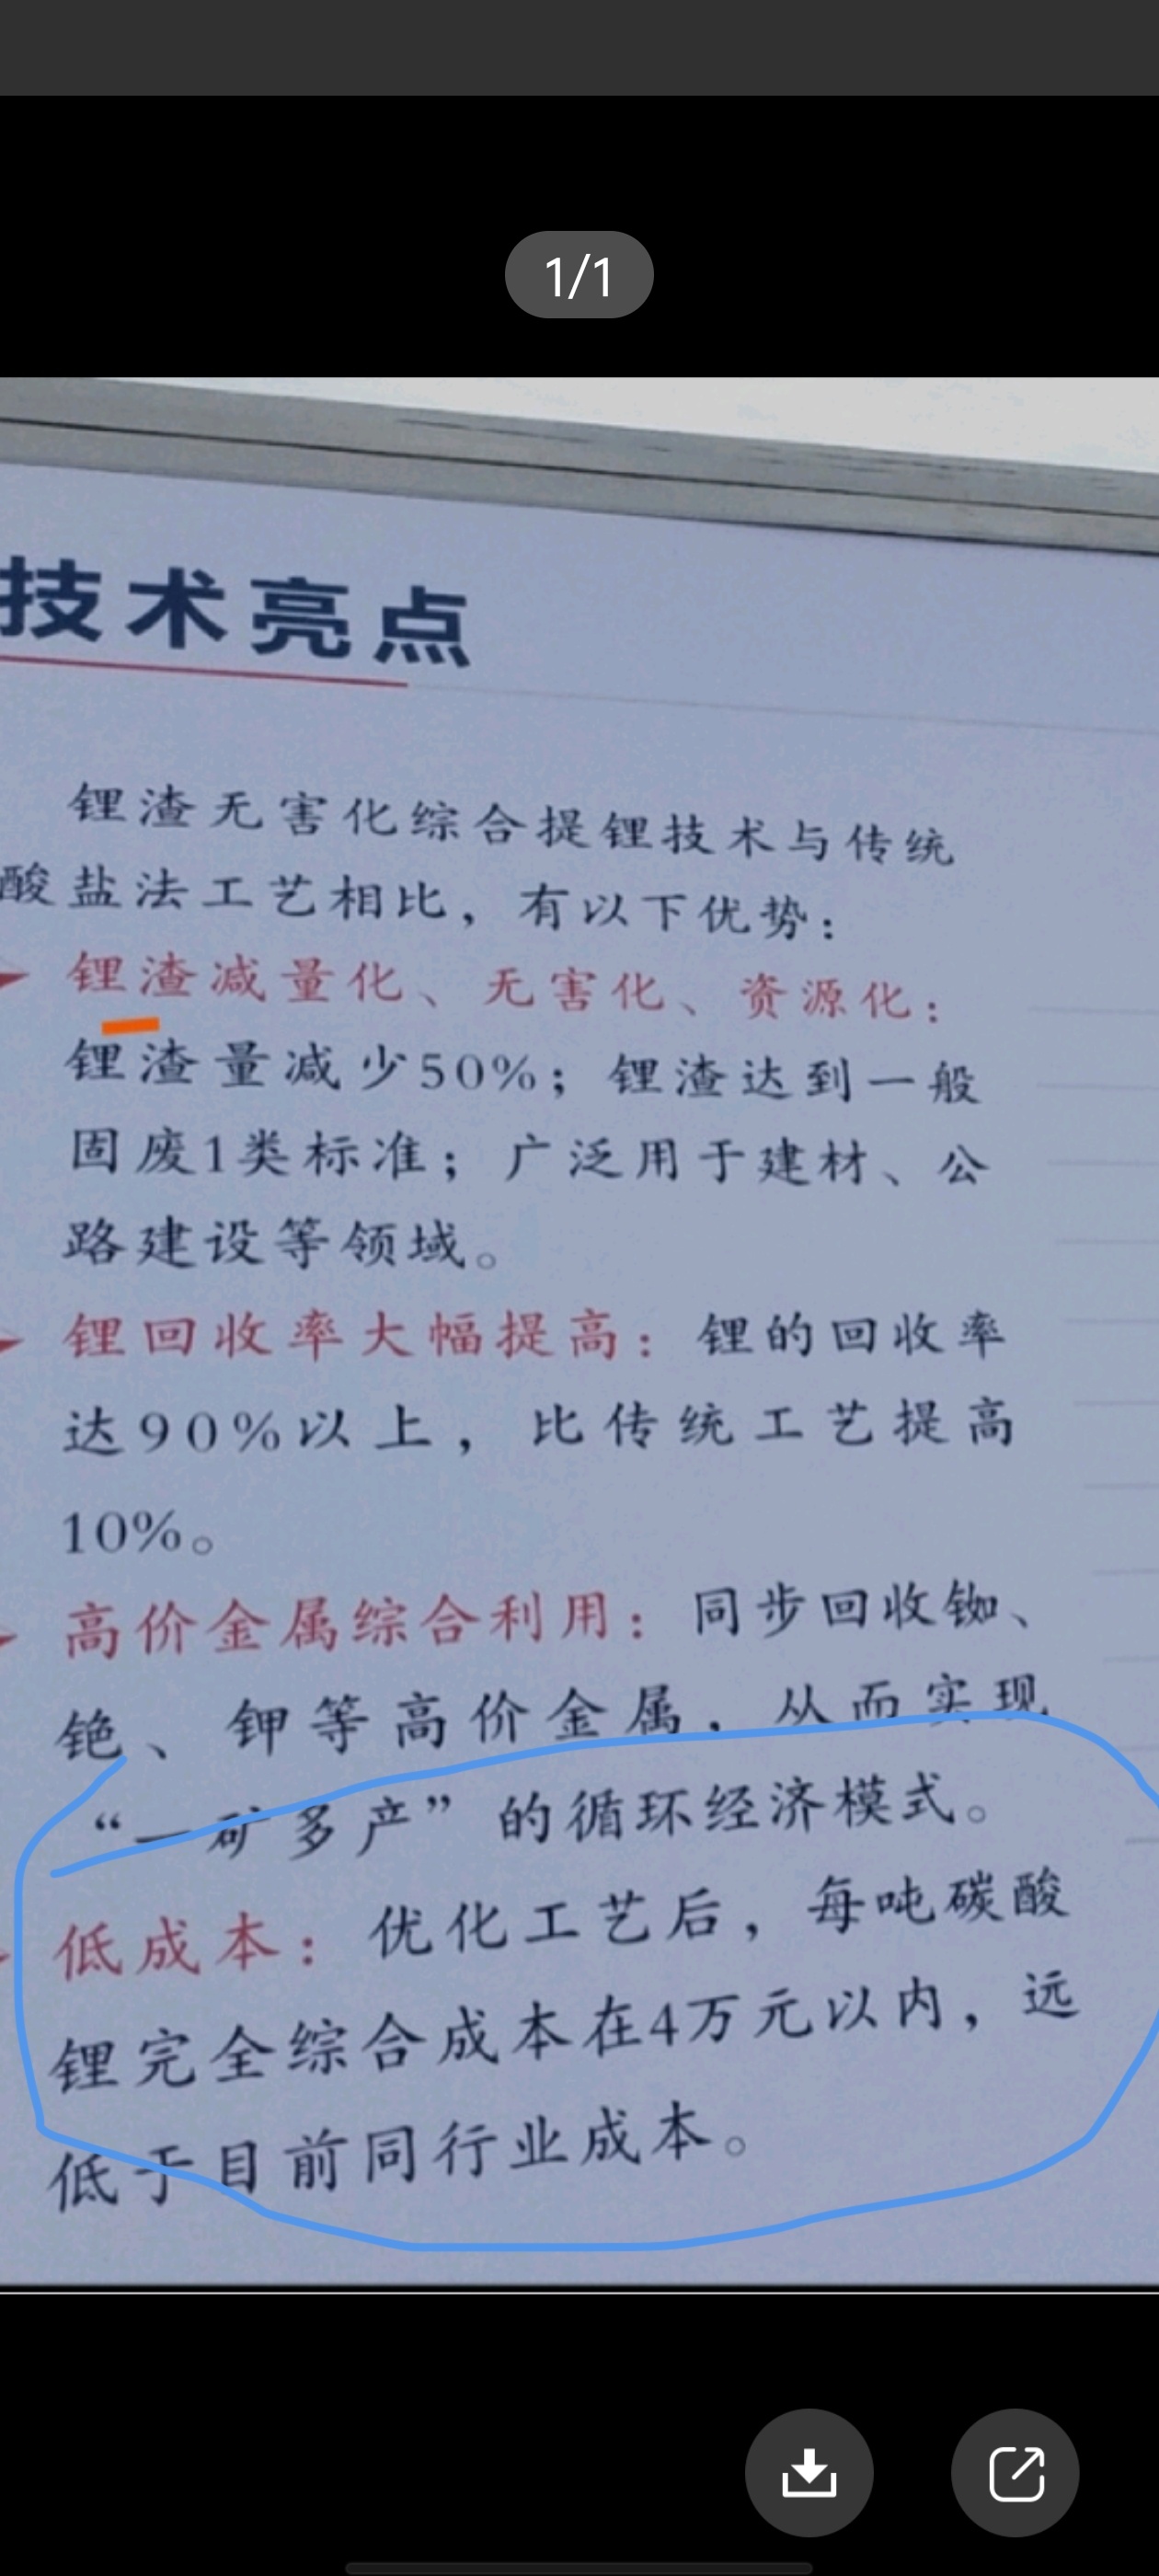 1/1
技术亮点
锂渣无害化综合提锂技术与传统
酸盐法工艺相比，有以下优势：
锂渣减量化、无害化、资源化：
锂渣量减少50%；锂渣达到一般
固废1类标准；广泛用于建材、公
路建设等领域。
锂回收率大幅提高：锂的回收率
达90%以上，比传统工艺提高
10%。
高价金属综合利用：同步回收铷、
铯、钾等高价金属，从而实现
“一矿多产”的循环经济模式。
低成本：优化工艺后，每吨碳酸
锂完全综合成本在4万元以内，远
低于目前同行业成本。